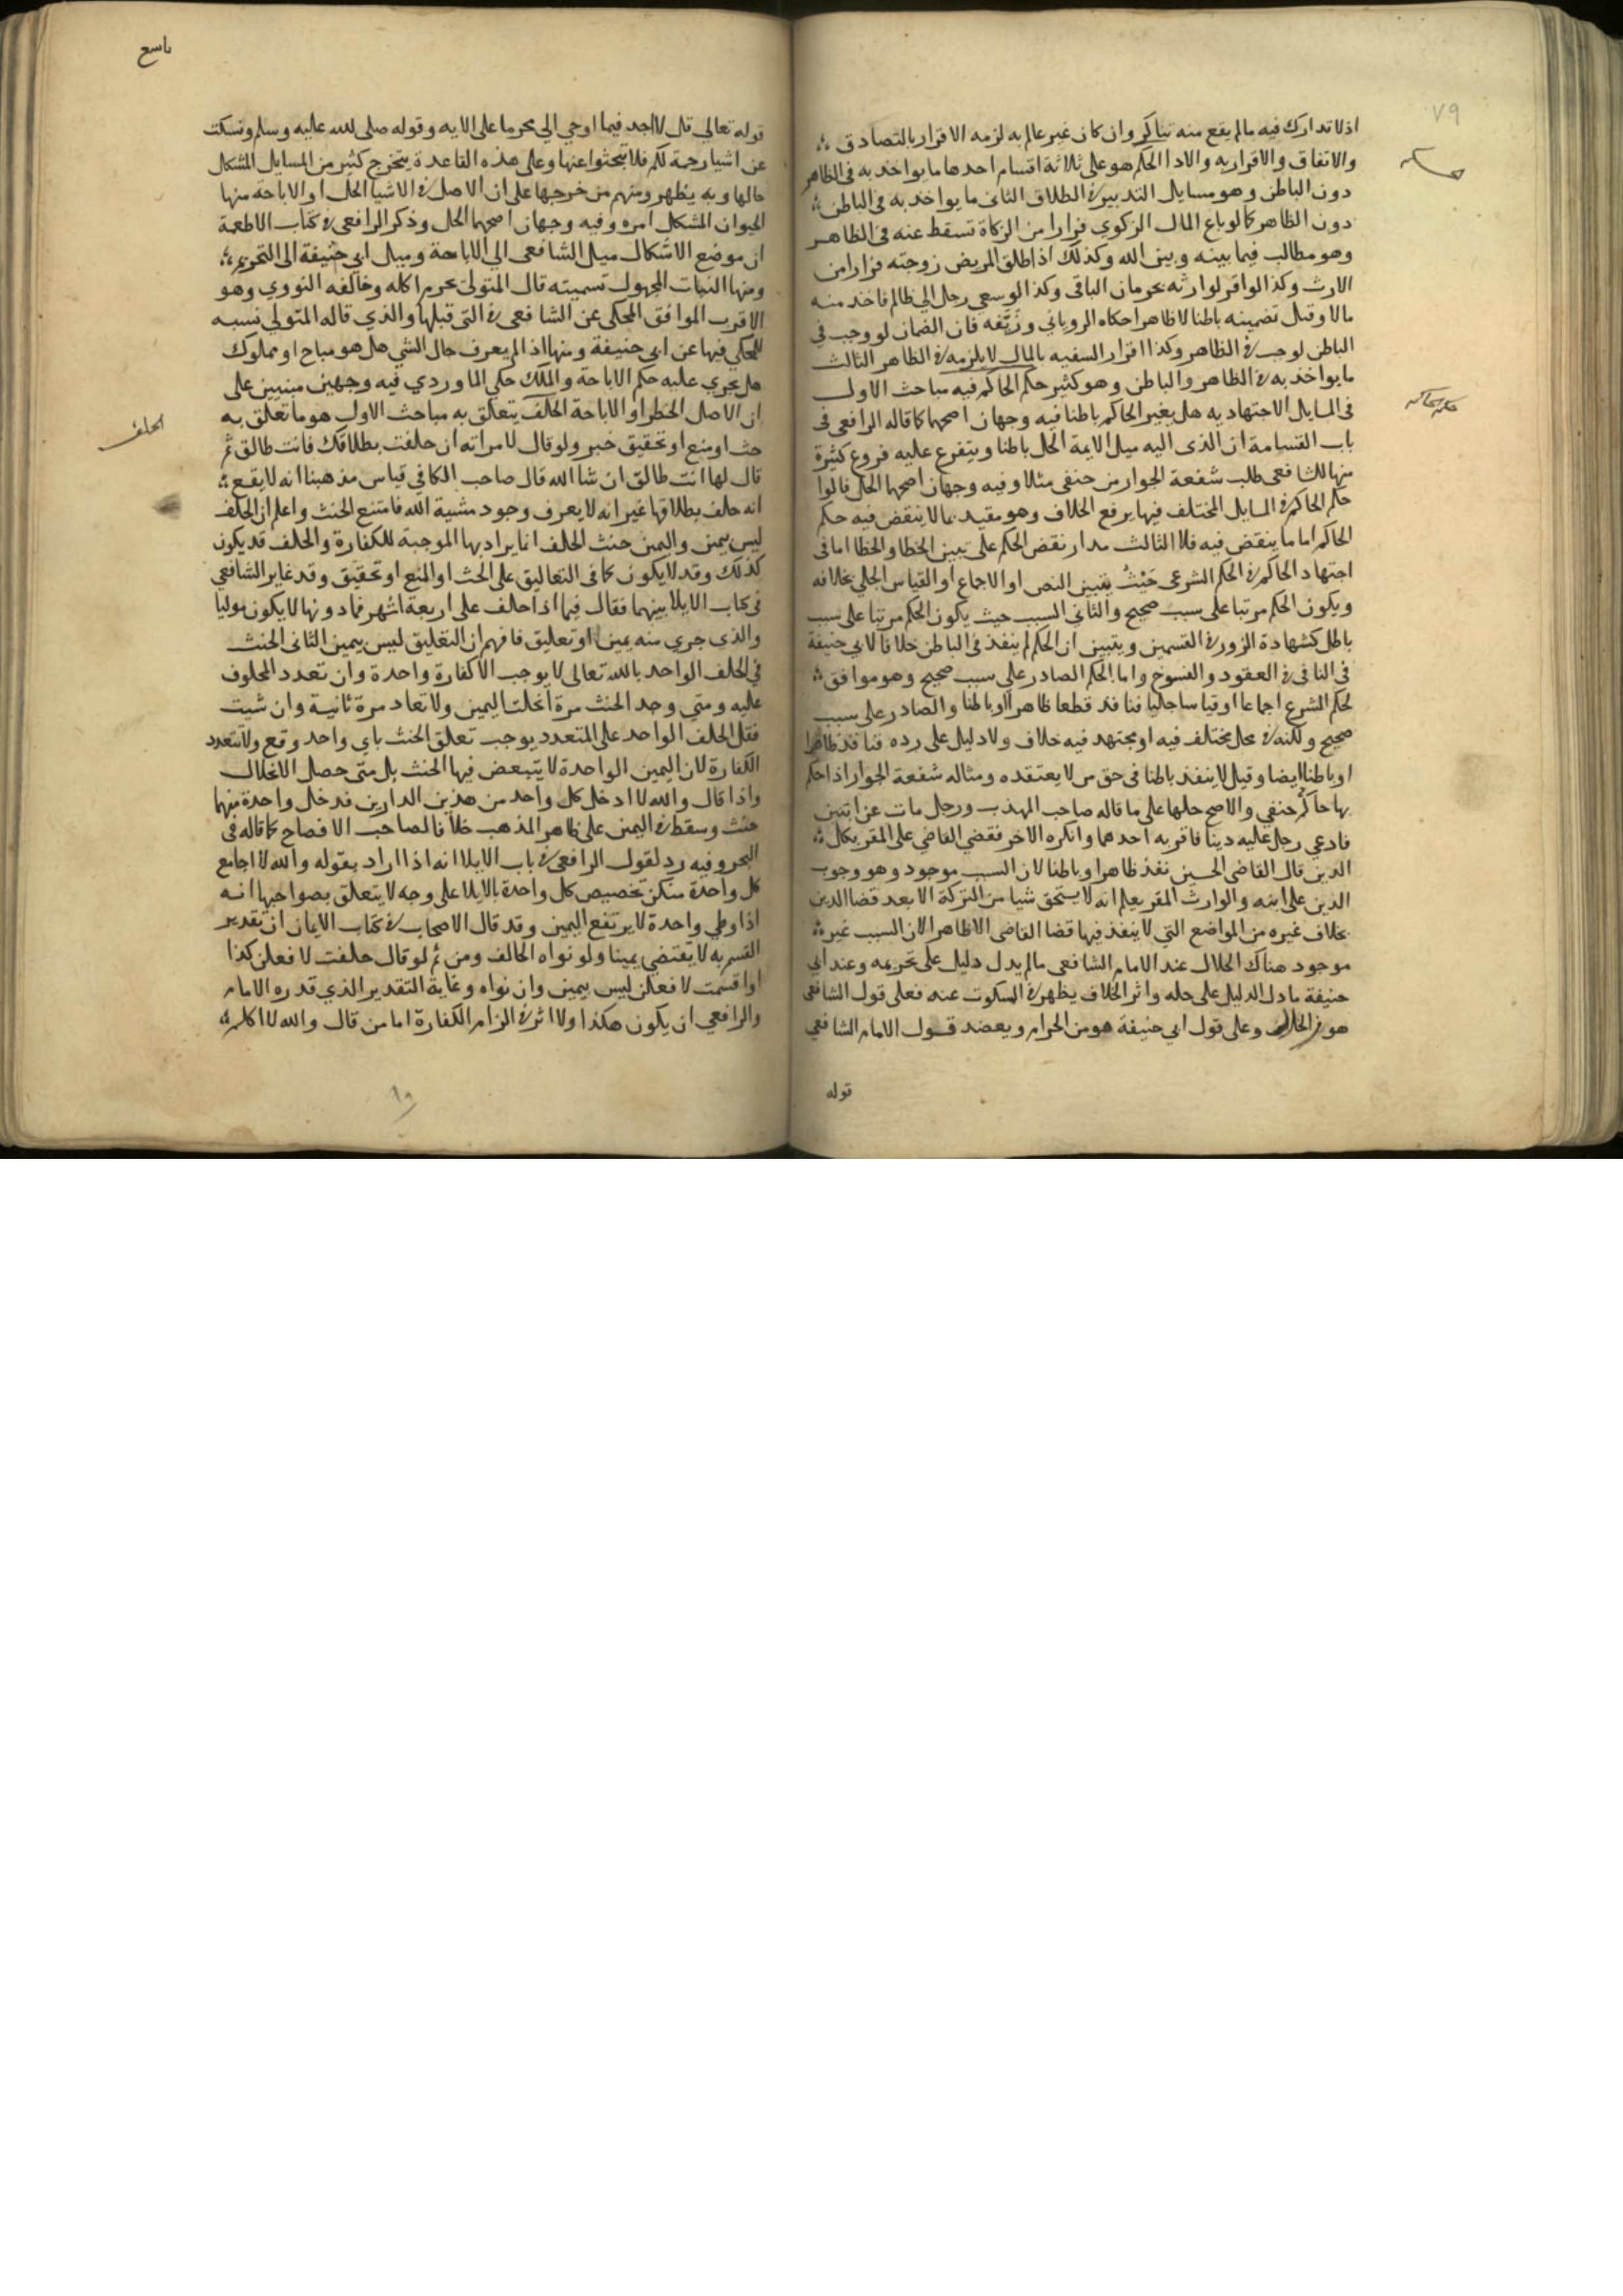 ٧٩
اذلا تدارك فيه مالم يقع منه تناكر وان كان غير عالم به لزمه الاقرار بالتصادق
والاتفاق والاقرار به والادا الحكم هو على ثلاثة اقسام احدها ما يواخذ به في الظاهر
دون الباطن وهو مسايل التدبير في الطلاق الثاني ما يواخذ به في الباطن
دون الظاهر كما لو باع المال الزكوي فرارا من الزكاة تسقط عنه في الظاهر
وهو مطالب فيما بينه وبين الله وكذلك اذا طلق المريض زوجته فرارا من
الارث وكذا لو اقر لوارثه بحرمان الباقي وكذا لو سعى رجل الي ظالم فاخذ منه
مالا وقيل تضمينه باطنا لا ظاهرا حكاه الروياني وزيّفه فان الضمان لو وجب في
الباطن لوجب في الظاهر وكذا اقرار السفيه بالمال لا يلزمه في الظاهر الثالث
ما يواخذ به في الظاهر والباطن وهو كثير حكم الحاكم فيه مباحث الاول
في المسايل الاجتهاديه هل يغير الحاكم باطنا فيه وجهان اصحهما كما قاله الرافعي في
باب القسامة ان الذي اليه ميل الايمة الحل باطنا ويتفرع عليه فروع كثيرة
منها للشافعي طلب شفعة الجوار من حنفي مثلا وفيه وجهان اصحهما الحل قالوا
حكم الحاكم في المسايل المختلف فيها يرفع الخلاف وهو مقيد بما لا ينقض فيه حكم
الحاكم اما ما ينقض فيه فلا الثالث مدار نقض الحكم على تبين الخطا والخطا اما في
اجتهاد الحاكم في الحكم الشرعي حيث يتبين النص او الاجماع او القياس الجلي بخلافه
ويكون الحكم مرتبا على سبب صحيح والثاني السبب حيث يكون الحكم مرتبا على سبب
باطل كشهادة الزور في القسمين ويتبين ان الحكم لم ينفذ في الباطن خلافا لابي حنيفة
في الثاني في العقود والفسوخ واما الحكم الصادر على سبب صحيح وهو موافق
لحكم الشرع اجماعا او قياسا جليا فنافذ قطعا ظاهرا وباطنا والصادر على سبب
صحيح ولكنه في محل مختلف فيه او مجتهد فيه خلاف ولا دليل على رده فنافذ ظاهرا
او باطنا ايضا وقيل لا ينفذ باطنا في حق من لا يعتقده ومثاله شفعة الجوار اذا حكم
بها حاكم حنفي والاصح حلها على ما قاله صاحب المهذب ورجل مات عن ابنين
فادعي رجل عليه دينا فاقر به احدهما وانكره الاخر فقضي القاضي على المقر بكل
الدين قال القاضي الحسين نفذ ظاهرا وباطنا لان السبب موجود وهو وجوب
الدين على ابنه والوارث المقر يعلم انه لا يستحق شيا من التركة الا بعد قضا الدين
بخلاف غيره من المواضع التي لا ينفذ فيها قضا القاضي الا ظاهرا لان السبب غير
موجود هناك الحلال عند الامام الشافعي مالم يدل دليل على تحريمه وعند ابي
حنيفة ما دل الدليل على حله واثر الخلاف يظهر في المسكوت عنه فعلى قول الشافعي
هو من الحلال وعلى قول ابي حنيفة هو من الحرام ويعضد قول الامام الشافعي
قوله
قوله تعالي قل لا اجد فيما اوحي الي محرما على الايه وقوله صلى الله عليه وسلم وسكت
عن اشيا رحمة لكم فلا تبحثوا عنها وعلى هذه القاعدة يتخرج كثير من المسايل المشكل
حالها وبه يظهر ومنهم من خرجها على ان الاصل في الاشيا الحل او الاباحة منها
الحيوان المشكل امره وفيه وجهان اصحهما الحل وذكر الرافعي في كتاب الاطعمة
ان موضع الاشكال ميل الشافعي الي الاباحة وميل ابي حنيفة الى التحريم
ومنها النبات المجهول تسميته قال المتولي يحرم اكله وخالفه النووي وهو
الاقرب الموافق للمحكي عن الشافعي في التي قبلها والذي قاله المتولي نسبه
للمحكي فيها عن ابي حنيفة ومنها اذا لم يعرف حال الشي هل هو مباح او مملوك
هل يجري عليه حكم الاباحة والملك حكي الماوردي فيه وجهين مبنيين على
ان الاصل الحظر او الاباحة الحلف يتعلق به مباحث الاول هو ما تعلق به
حث او منع او تحقيق خبر ولو قال لامراته ان حلفت بطلاقك فانت طالق ثم
قال لها انت طالق ان شا الله قال صاحب الكافي قياس مذهبنا انه لا يقع
انه حلف بطلاقها غير انه لا يعرف وجود مشية الله فامتنع الحنث واعلم ان الحلف
ليس يمين واليمين حنث الحلف انما يراد بها الموجبة للكفارة والحلف قد يكون
كذلك وقد لا يكون كما في التعاليق على الحث او المنع او تحقيق وقد غاير الشافعي
في كتاب الايلا بينهما فقال فيما اذا حلف على اربعة اشهر فما دونها لا يكون موليا
والذي جري منه يمين او تعليق فافهم ان التعليق ليس يمين الثاني الحنث
في الحلف الواحد بالله تعالى لا يوجب الا كفارة واحدة وان تعدد المحلوف
عليه ومتي وجد الحنث مرة انحلت اليمين ولا تعاد مرة ثانية وان شيت
فقل الحلف الواحد على المتعدد يوجب تعلق الحنث باي واحد وقع ولا تتعدد
الكفارة لان اليمين الواحدة لا يتبعض فيها الحنث بل متى حصل الانحلال
واذا قال والله لا ادخل كل واحد من هذين الدارين فدخل واحدة منهما
حنث وسقط في اليمين على ظاهر المذهب خلافا لصاحب الافصاح كما قاله في
البحر وفيه رد لقول الرافعي في باب الايلا انه اذا اراد بقوله والله لا اجامع
كل واحدة منكن تخصيص كل واحدة بالايلا على وجه لا يتعلق بصواحبها انه
اذا وطي واحدة لا يرتفع اليمين وقد قال الاصحاب في كتاب الايمان ان تقدير
القسم به لا يقتضي يمينا ولو نواه الحالف ومن ثم لو قال حلفت لافعلن كذا
او اقسمت لافعلن ليس يمين وان نواه وغاية التقدير الذي قدره الامام
والرافعي ان يكون هكذا ولا اثر في الزام الكفارة اما من قال والله لا اكلم
الحلف